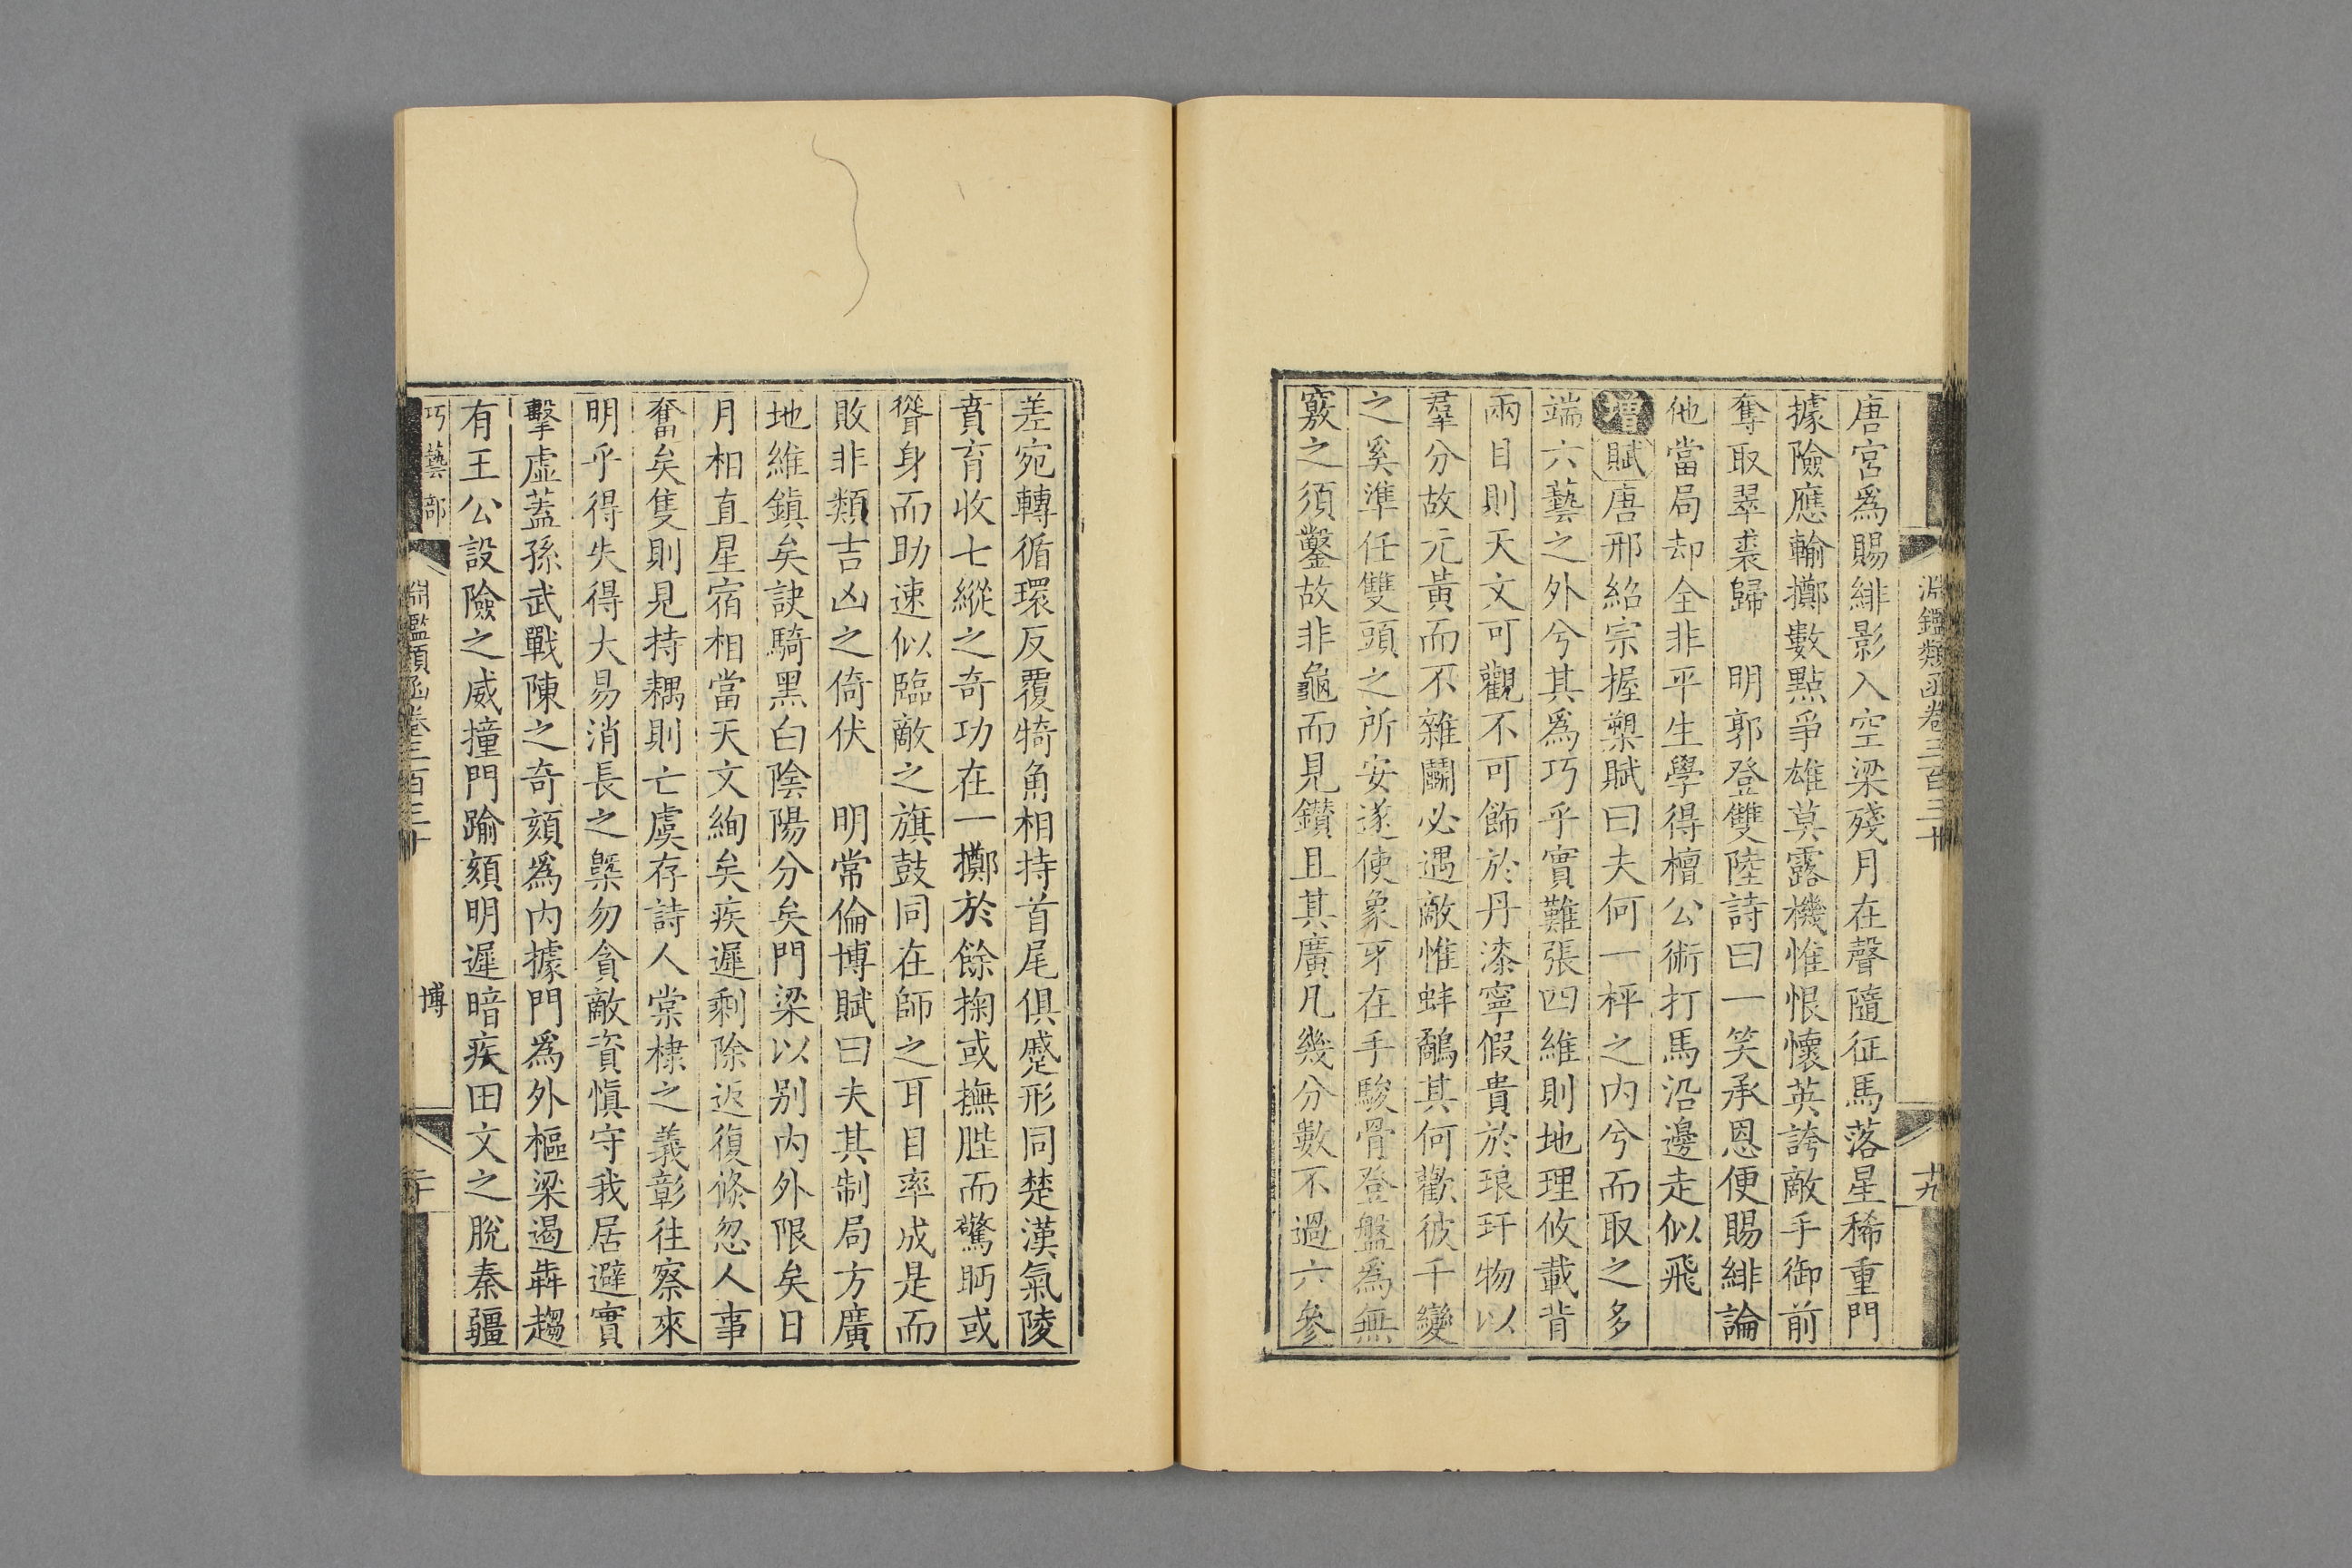 淵鑑類函卷三百三十
十九
唐宮爲賜緋影入空梁殘月在聲隨征馬落星稀重門
據險應輸擲數點爭雄莫露機惟恨懷英誇敵手御前
奪取翠裘歸 明郭登雙陸詩曰一笑承恩便賜緋論
他當局却全非平生學得檀公術打馬沿邊走似飛
增賦唐邢紹宗握槊賦曰夫何一枰之內兮而取之多
端六藝之外兮其爲巧乎實難張四維則地理攸載背
兩目則天文可觀不可飾於丹漆寧假貴於琅玕物以
羣分故元黃而不雜鬬必遇敵惟蚌鷸其何歡彼千變
之奚準任雙頭之所安遂使象牙在手駿骨登盤爲無
竅之須鑿故非龜而見鑽且其廣凡幾分數不過六參
差宛轉循環反覆犄角相持首尾俱蹙形同楚漢氣陵
賁育收七縱之奇功在一擲於餘掬或撫髀而驚眄或
聳身而助速似臨敵之旗鼓同在師之耳目率成是而
敗非類吉凶之倚伏 明常倫博賦曰夫其制局方廣
地維鎮矣訣騎黑白陰陽分矣門梁以别內外限矣日
月相直星宿相當天文絢矣疾遲剩除返復倏忽人事
奮矣隻則見持耦則亡虞存詩人棠棣之義彰往察來
明乎得失得大易消長之槩勿貪敵資愼守我居避實
擊虛蓋孫武戰陳之奇頦爲內據門爲外樞梁遏犇趨
有王公設險之威撞門踰頦明遲暗疾田文之脫秦疆
巧藝部
淵鑑類函卷三百三十
博
二十